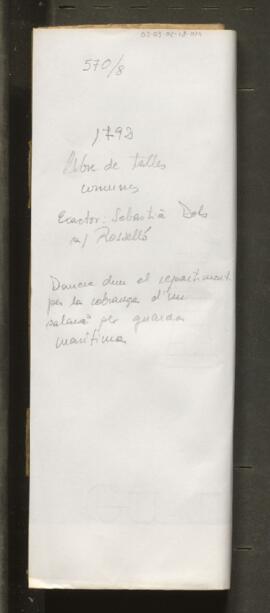 570/8
1793
Llibre de talles
comunes
Exactor: Sebastià Dols
Rosselló
Darrera duu el repartiment
per la cobrança d'un
salari per guarda
marítima